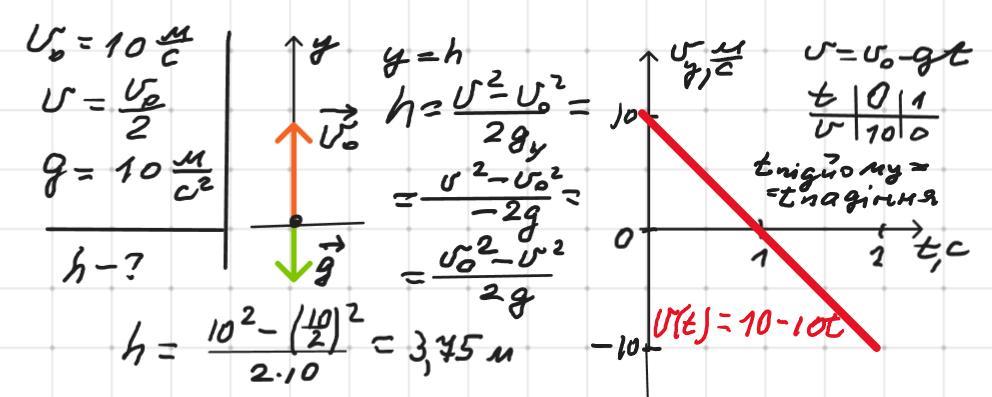 v₀ = 10 м/с
v = v₀/2
g = 10 м/с²
h – ?
y
v₀
g
y = h
h = (v² – v₀²)/(2g_y) =
= (v² – v₀²)/(–2g) =
= (v₀² – v²)/(2g)
h = (10² – (10/2)²)/(2·10) = 3,75 м
v_y, м/с
10
0
–10
1
2
t, с
v = v₀ – gt
t | 0 | 1
v | 10 | 0
t підйому =
= t падіння
v(t) = 10 – 10t